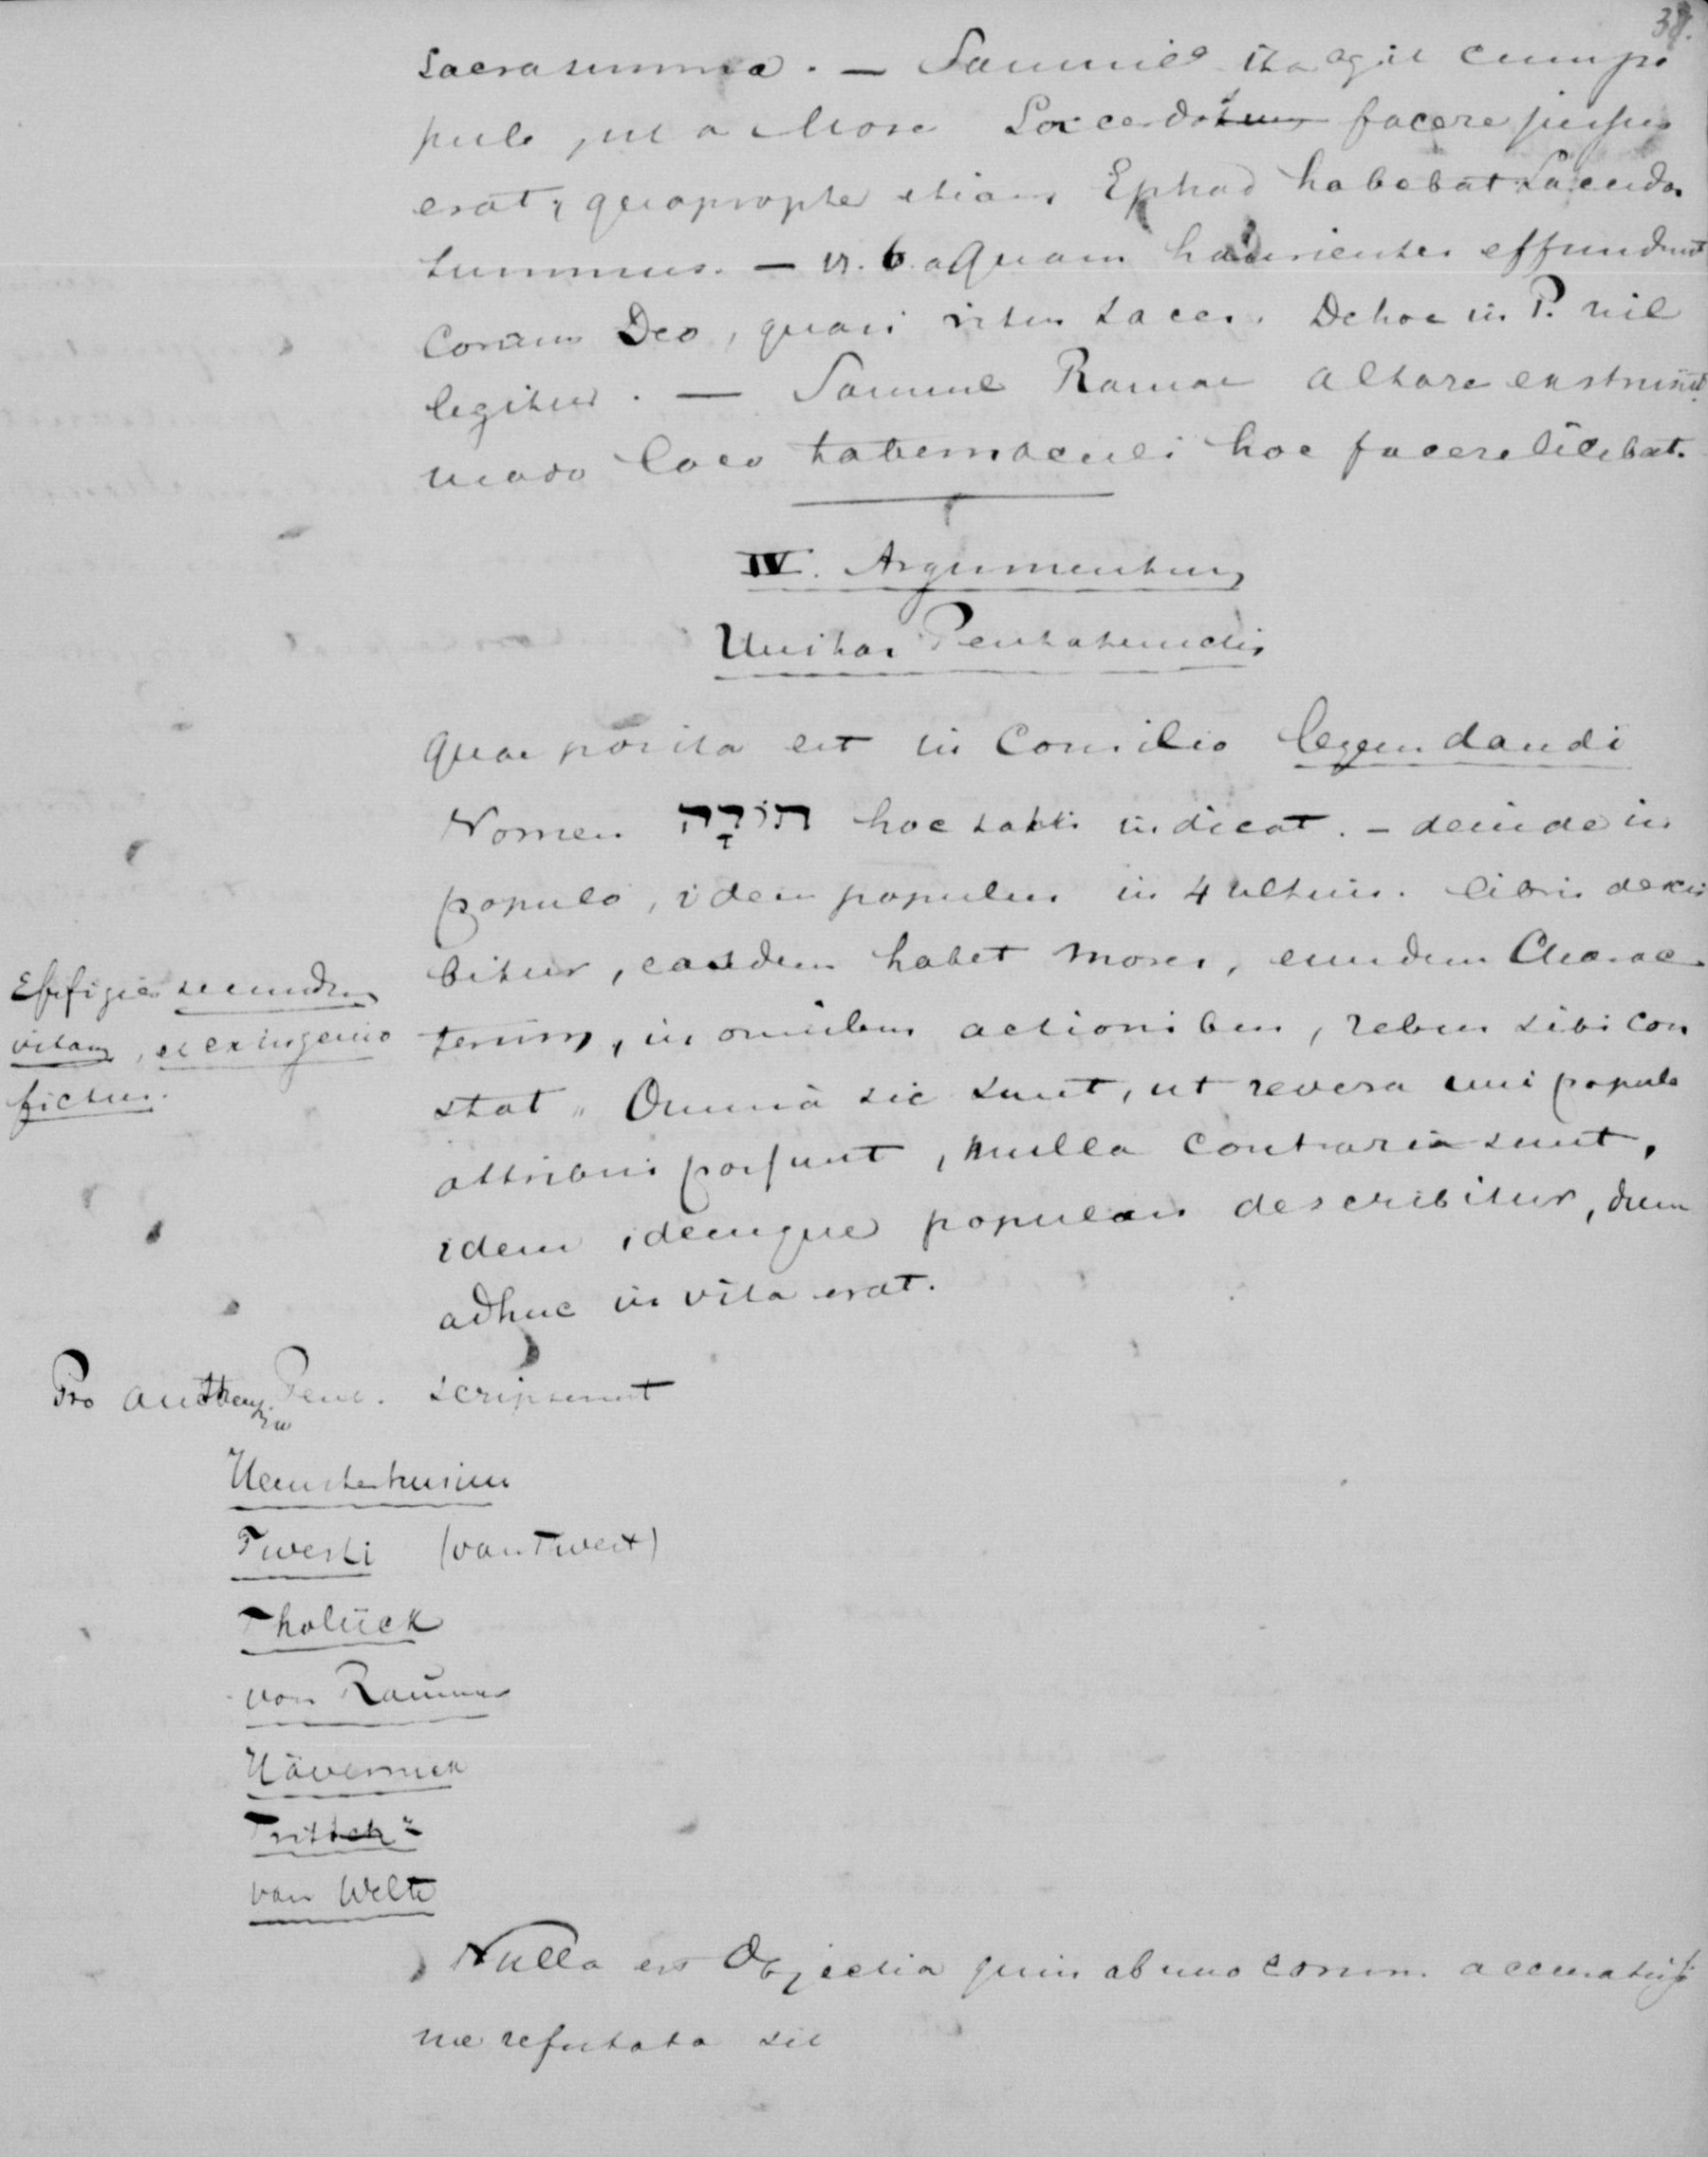 38.
sacra summa. — Samuel ita agit cum po
pulo, ut a Mose Sacerdotum facere jussus
erat, quapropter etiam Ephod habebat Sacerdos
summus. — vs. 6. aquam haurientes effundunt
Coram Deo, quasi ritus sacer. De hoc in P. nil
legitur. — Samuel Ramae altare exstruit
modo loco tabernaculi hoc facere licebat.
IV. Argumentum
Unitas Pentateuchi
quae posita est in Consilio legem dandi
Nomen תּוֹרָה hoc satis indicat. — deinde in
populo, idem populus in 4 ultim. libris descri
bitur, eosdem habet mores, eundem Charac
terem, in omnibus actionibus, rebus sibi con
stat. Omnia sic sunt, ut revera uni populo
attribui possunt, nulla contraria sunt,
idem idemque populus describitur, dum
adhuc in vita erat.
Effigies secundum
vitam, et ex ingenio
fictus.
Pro Authen. Pent. scripserunt
Hemsterhusius
Twesti (van Twest)
Tholück
von Raumer
Hävernick
van Welte
Nulla est Objectio quin ab uno eorum accuratissi
me refutata sit